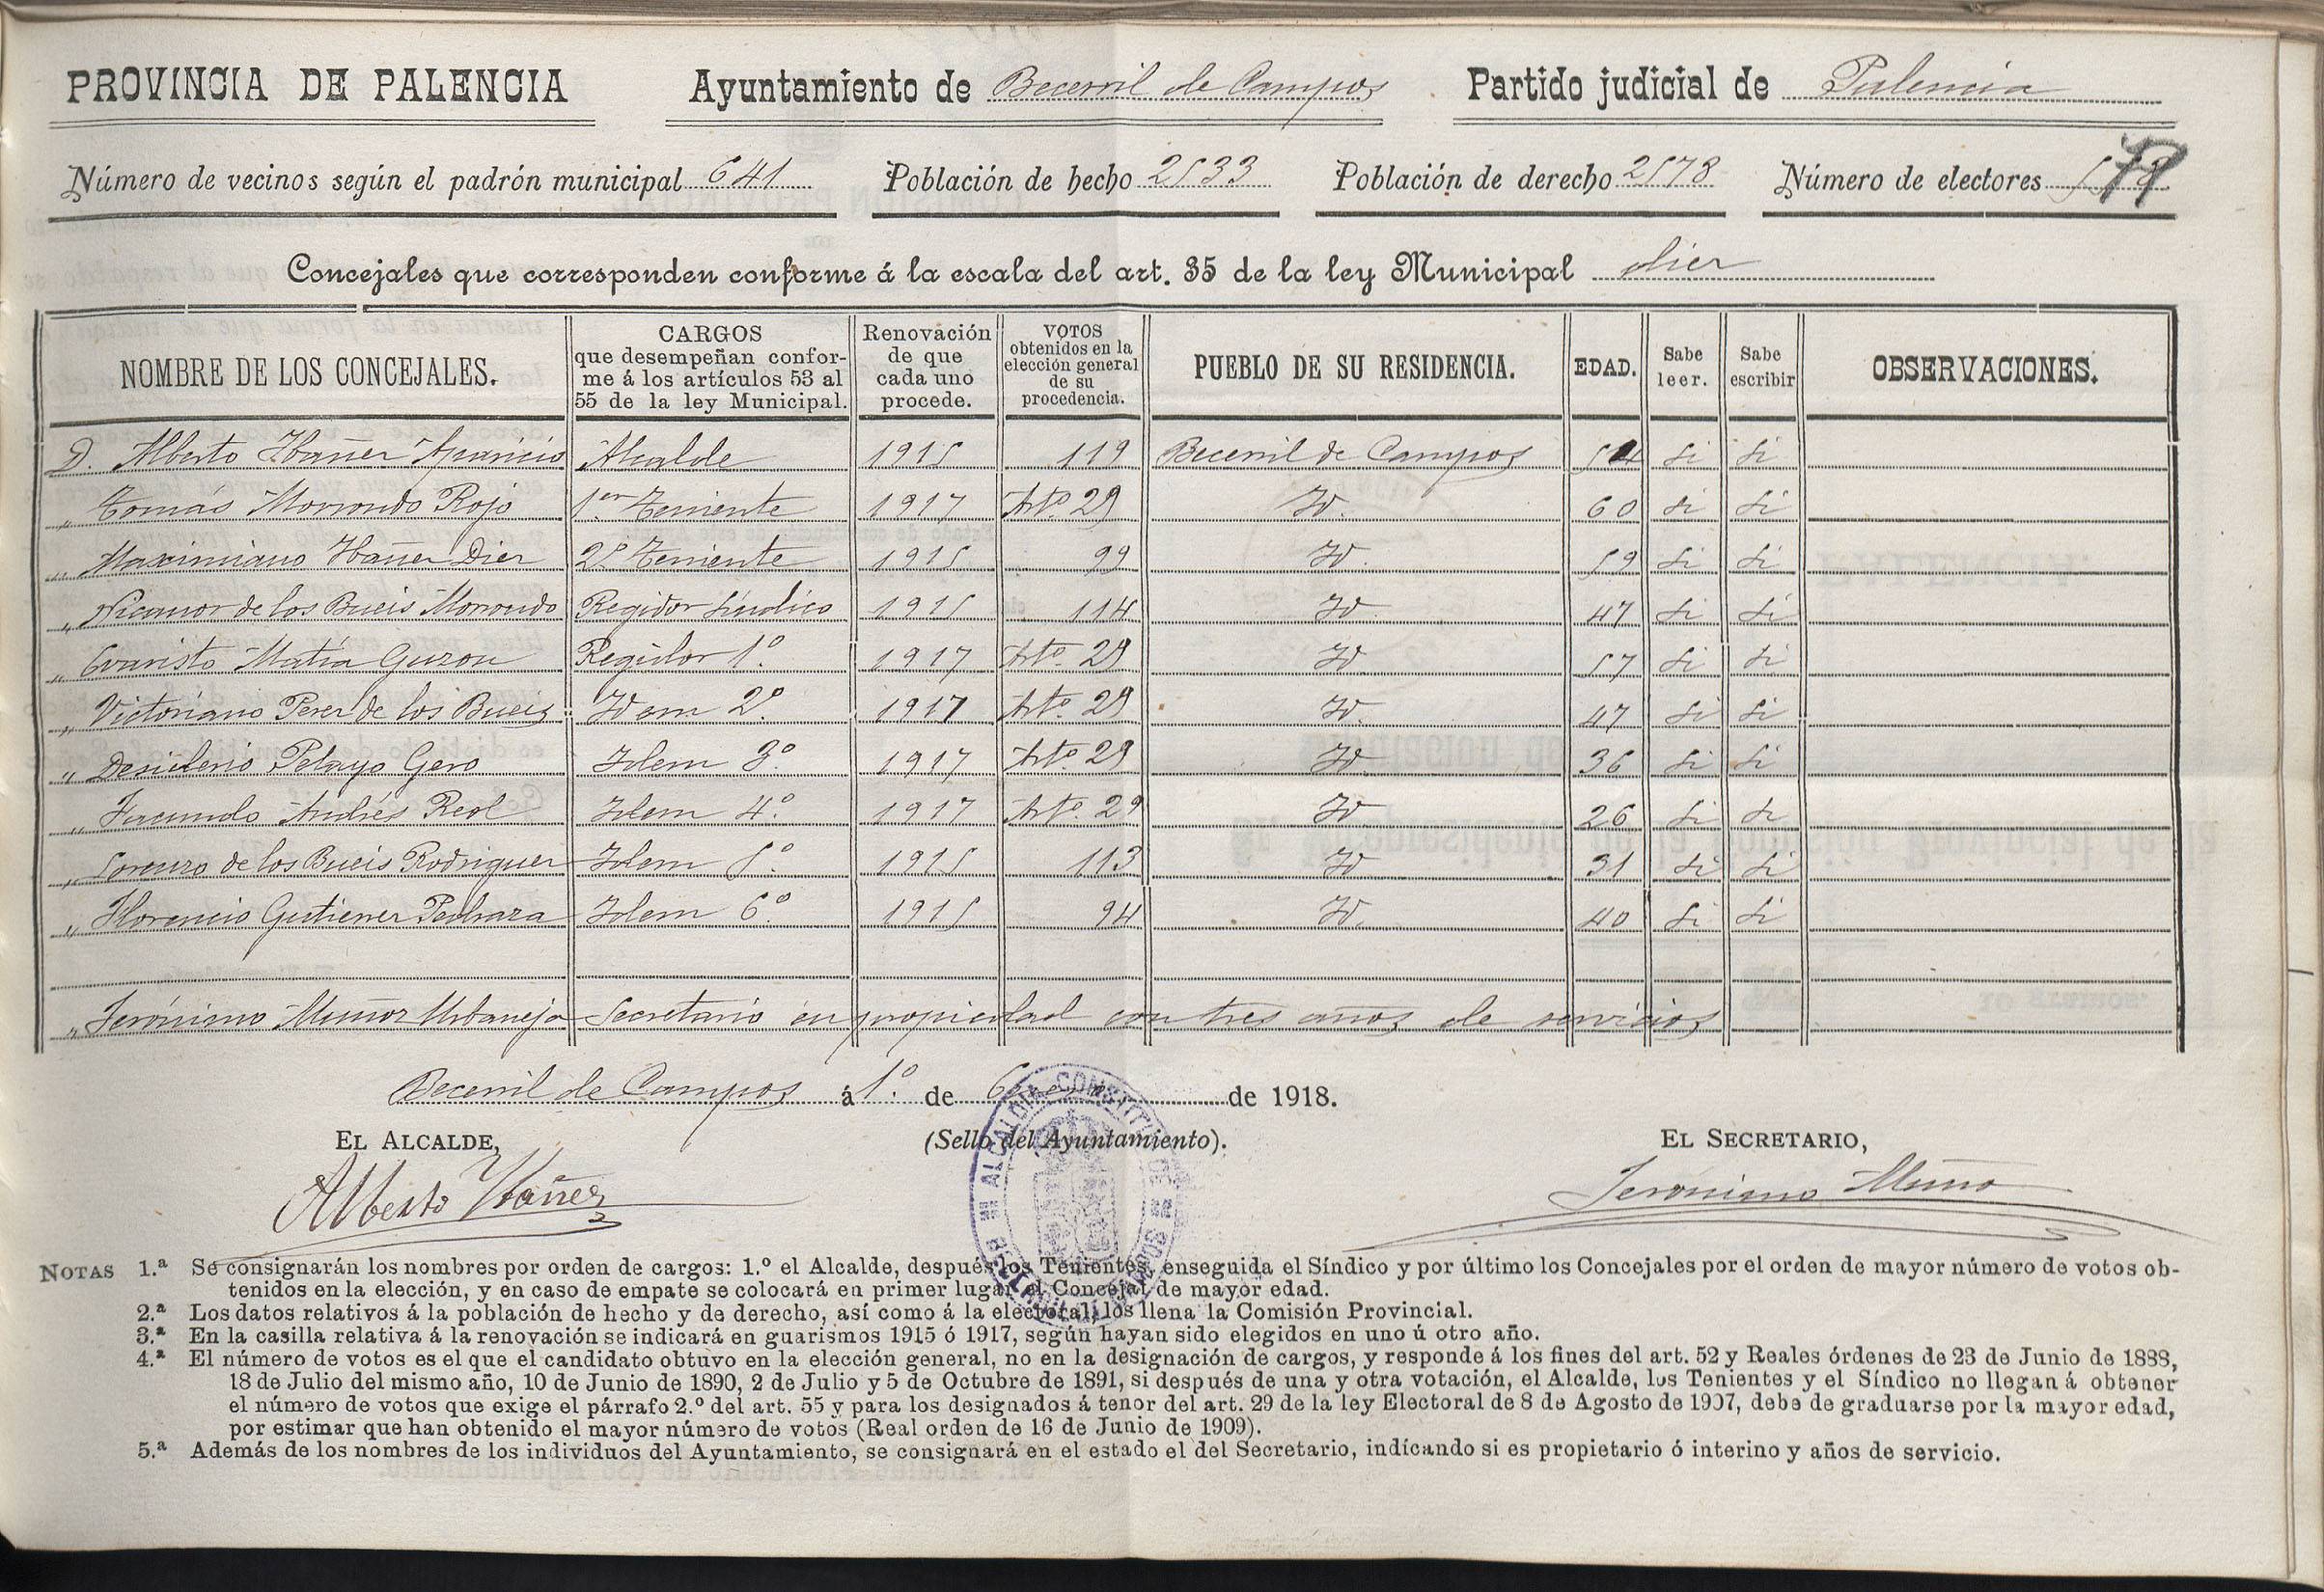 PROVINCIA DE PALENCIA Ayuntamiento de Becerril de Campos Partido judicial de Palencia
Número de vecinos según el padrón municipal 641 Población de hecho 2533 Población de derecho 2578 Número de electores
Concejales que corresponden conforme á la escala del art. 35 de la ley Municipal diez
NOMBRE DE LOS CONCEJALES. CARGOS que desempeñan conforme á los artículos 53 al 55 de la ley Municipal. Renovación de que cada uno procede. VOTOS obtenidos en la elección general de su procedencia. PUEBLO DE SU RESIDENCIA. EDAD. Sabe leer. Sabe escribir OBSERVACIONES.
D. Alberto Ibañez Aparicio Alcalde 1915 119 Becerril de Campos si si
„ Tomás Morrondo Rojo 1.er Teniente 1917 Art.º 29 Id. 60 si si
„ Maximiano Ibañez Diez 2.º Teniente 1915 99 Id. 59 si si
„ Nicanor de los Bueis Morrondo Regidor Síndico 1915 114 Id. 47 si si
„ Evaristo Matía Guzon Regidor 1.º 1917 Art.º 29 Id. 57 si si
„ Victoriano Perez de los Bueis Idem 2.º 1917 Art.º 29 Id. 47 si si
„ Desiderio Pelayo Gero Idem 3.º 1917 Art.º 29 Id. 36 si si
„ Facundo Andrés Reol Idem 4.º 1917 Art.º 29 Id. 26 si si
„ Lorenzo de los Bueis Rodriguez Idem 5.º 1915 113 Id. 31 si si
„ Florencio Gutierrez Pedraza Idem 6.º 1915 94 Id. 40 si si
„ Jerónimo Muñoz Urbaneja Secretario en propiedad con tres años de servicios
Becerril de Campos á 1.º de Enero de 1918.
EL ALCALDE, (Sello del Ayuntamiento). EL SECRETARIO,
Alberto Ibañez Jeronimo Muño
ALCALDIA CONSTITUCIONAL DE BECERRIL DE CAMPOS
NOTAS 1.ª Se consignarán los nombres por orden de cargos: 1.º el Alcalde, después los Tenientes, enseguida el Síndico y por último los Concejales por el orden de mayor número de votos ob-
tenidos en la elección, y en caso de empate se colocará en primer lugar el Concejal de mayor edad.
2.ª Los datos relativos á la población de hecho y de derecho, así como á la electoral, los llena la Comisión Provincial.
3.ª En la casilla relativa á la renovación se indicará en guarismos 1915 ó 1917, según hayan sido elegidos en uno ú otro año.
4.ª El número de votos es el que el candidato obtuvo en la elección general, no en la designación de cargos, y responde á los fines del art. 52 y Reales órdenes de 23 de Junio de 1888,
18 de Julio del mismo año, 10 de Junio de 1890, 2 de Julio y 5 de Octubre de 1891, si después de una y otra votación, el Alcalde, los Tenientes y el Síndico no llegan á obtener
el número de votos que exige el párrafo 2.º del art. 55 y para los designados á tenor del art. 29 de la ley Electoral de 8 de Agosto de 1907, debe de graduarse por la mayor edad,
por estimar que han obtenido el mayor número de votos (Real orden de 16 de Junio de 1909).
5.ª Además de los nombres de los individuos del Ayuntamiento, se consignará en el estado el del Secretario, indicando si es propietario ó interino y años de servicio.